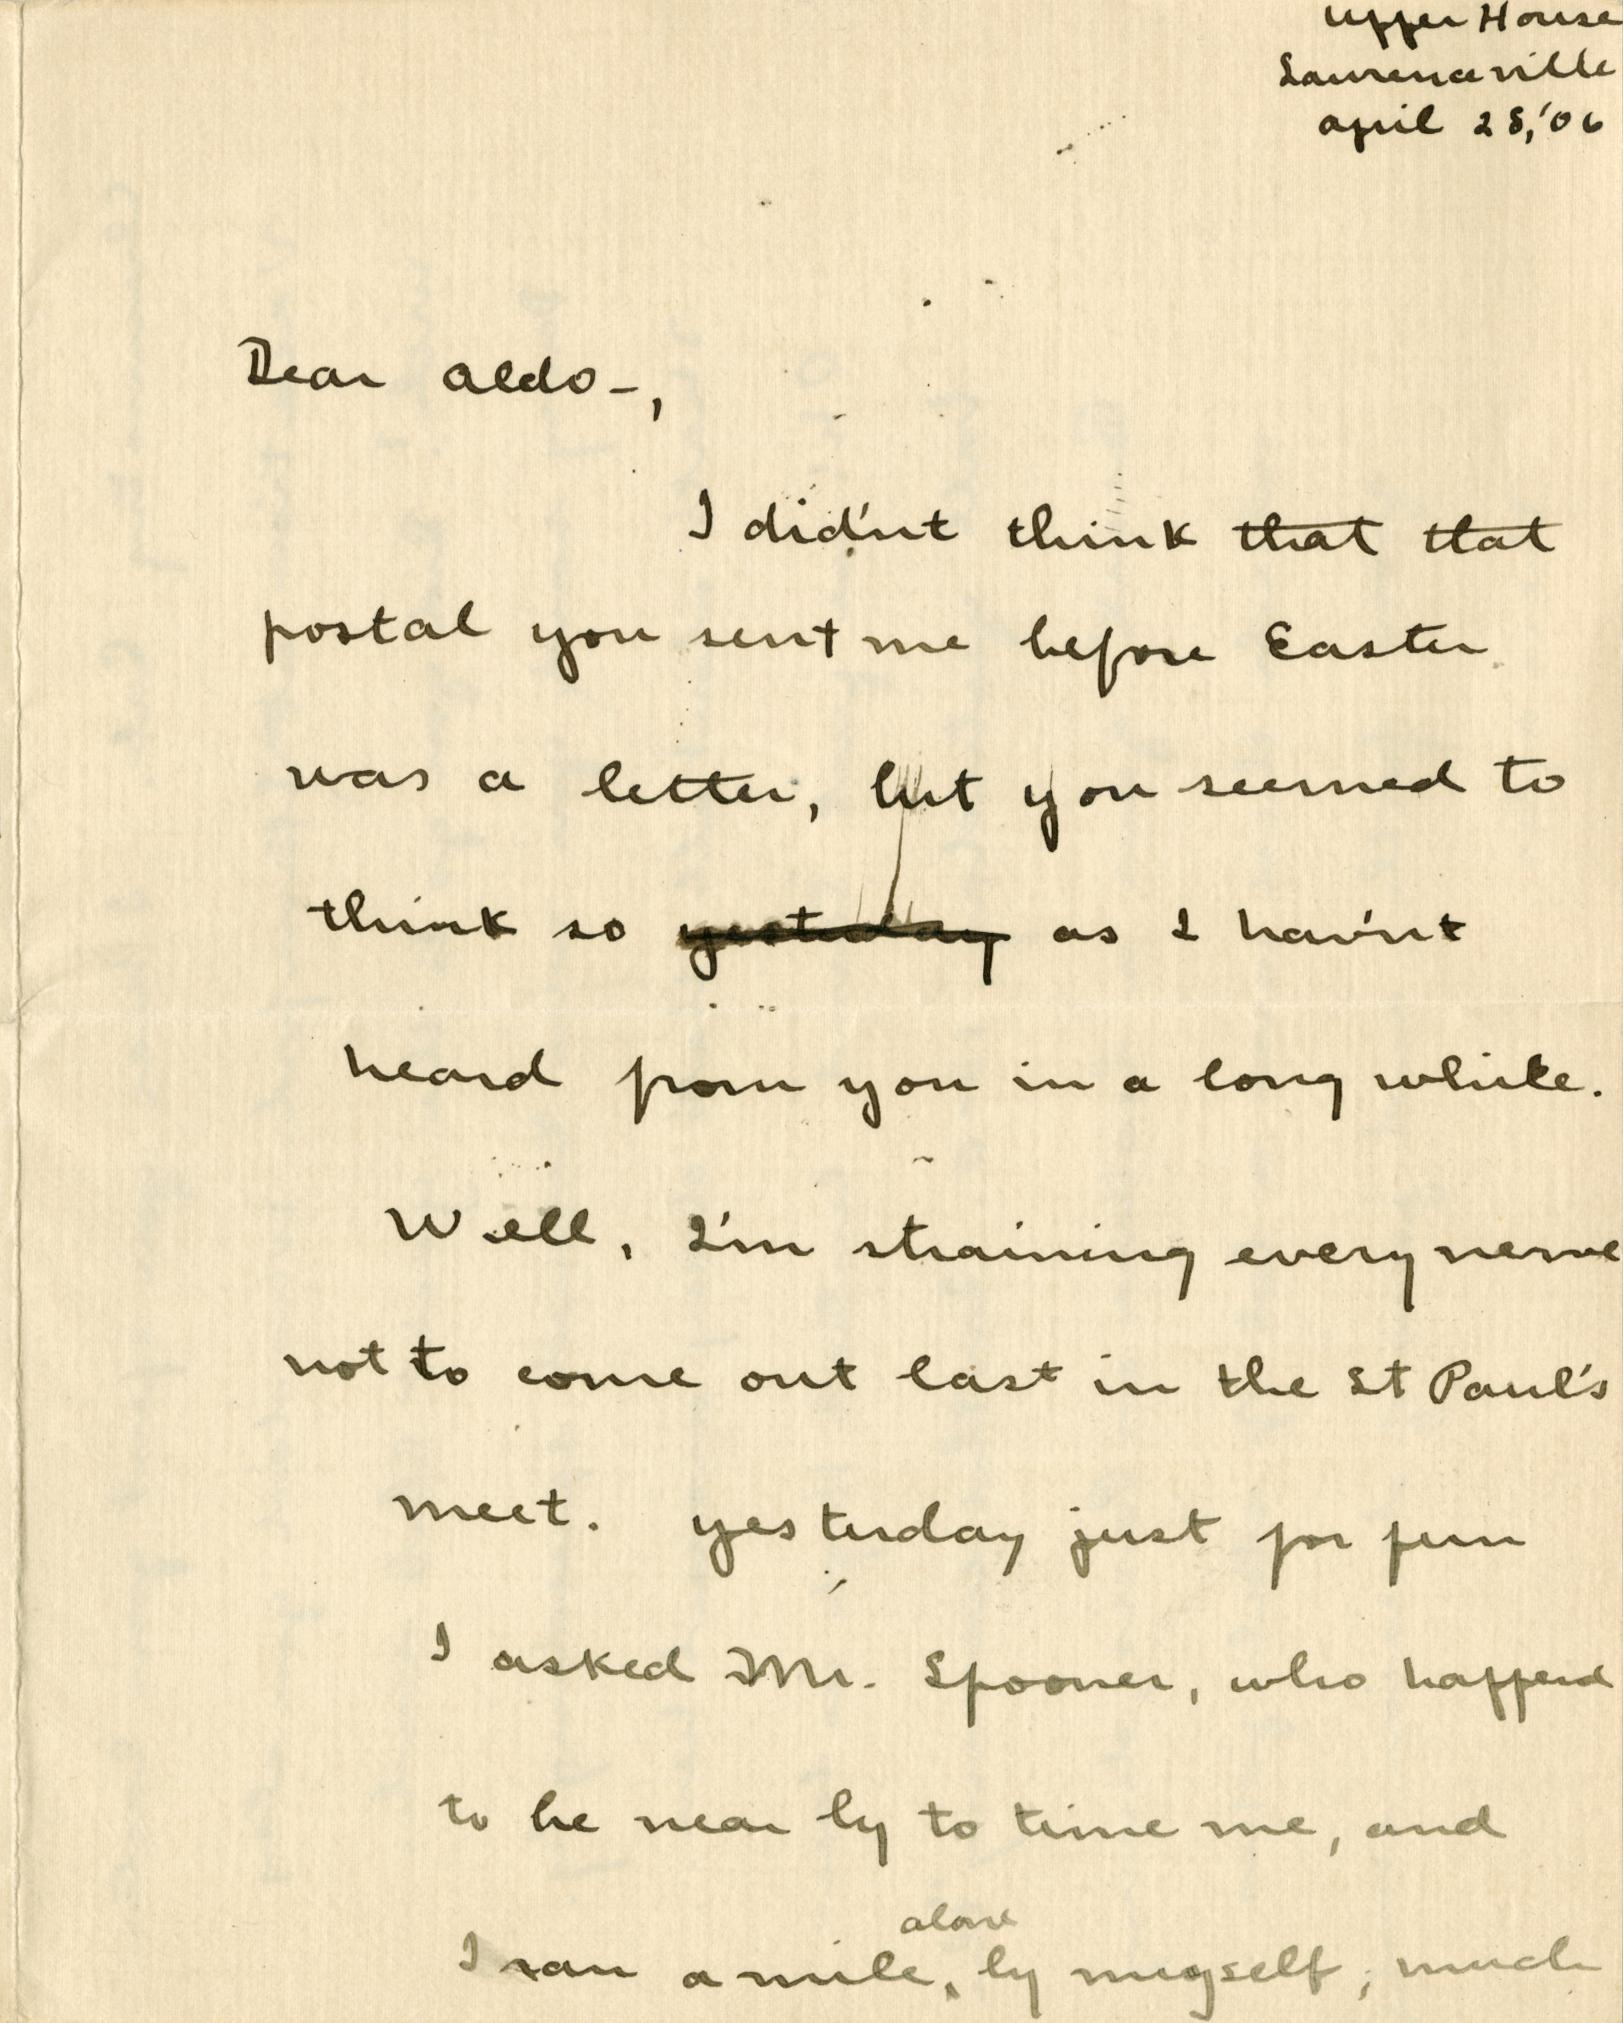 Upper House
Lawrenceville
April 28, '06
Dear Aldo-,
I did'nt think that that
postal you sent me before Easter
was a letter, but you seemed to
think so yesterday as I hav'nt
heard from you in a long while.
Well, I'm straining every nerve
not to come out last in the St Paul's
meet. yesterday just for fun
I asked Mr. Spooner, who happend
to be near by to time me, and
alone
I ran a mile, by mygself, much